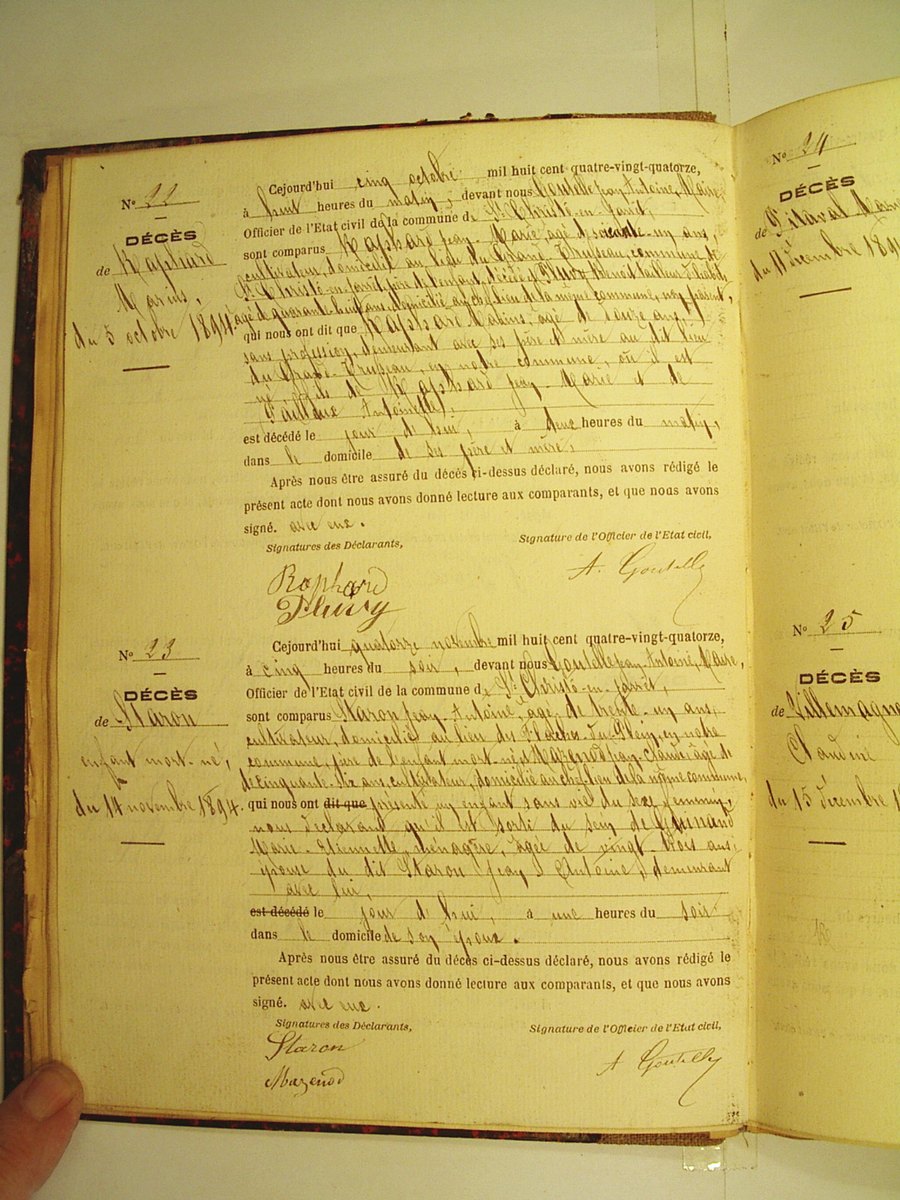 N° 22
DÉCÈS
de Raphard
Marius,
du 5 octobre 1894.
Cejourd'hui cinq octobre mil huit cent quatre-vingt-quatorze,
à huit heures du matin, devant nous Goutelle Jean Antoine, Maire,
Officier de l'Etat civil de la commune de St Christô-en-Jarret,
sont comparus Raphard Jean-Marie âgé de soixante-un ans,
cultivateur, domicilié au lieu du Grand-Trusseau, commune de
St Christô-en-Jarret, père de l'enfant décédé et Fleury tailleur d'habits,
âgé de quarante-huit ans, domicilié au chef-lieu de la même commune, non parent,
qui nous ont dit que Raphard Marius, âgé de ans,
sans profession, demeurant avec ses père et mère au dit lieu
du Grand-Trusseau, en notre commune, où il est
né, fils de Raphard Jean-Marie et de
Antoinette,
est décédé le jour d'hui, à deux heures du matin,
dans le domicile de ses père et mère,
Après nous être assuré du décès ci-dessus déclaré, nous avons rédigé le
présent acte dont nous avons donné lecture aux comparants, et que nous avons
signé. avec eux.
Signatures des Déclarants,
Signature de l'Officier de l'Etat civil,
Raphard
Fleury
A. Goutelle
N° 23
DÉCÈS
de Staron
enfant mort-né,
du 14 novembre 1894.
Cejourd'hui quatorze novembre mil huit cent quatre-vingt-quatorze,
à cinq heures du soir, devant nous Goutelle Jean-Antoine, Maire,
Officier de l'Etat civil de la commune de St Christô-en-Jarret,
sont comparus Staron Jean-Antoine, âgé de trente-un ans,
cultivateur, domicilié au lieu des en notre
commune, père de l'enfant mort-né, et Mazenod Jean-Claude âgé de
cinquante-six ans, cultivateur, domicilié au chef-lieu de la même commune,
qui nous ont dit que présenté un enfant sans vie, du sexe féminin,
nous déclarant qu'il est sorti du sein de
Marie-Etiennette, ménagère, âgée de vingt-trois ans,
épouse du dit Staron (Jean-Antoine) demeurant
avec lui,
est décédé le jour d'hui, à une heures du soir
dans le domicile de son époux.
Après nous être assuré du décès ci-dessus déclaré, nous avons rédigé le
présent acte dont nous avons donné lecture aux comparants, et que nous avons
signé. avec eux.
Signatures des Déclarants,
Signature de l'Officier de l'Etat civil,
Staron
Mazenod
A Goutelle
N° 24
DÉCÈS
de Pitaval
du 11 décembre 189
N° 25
DÉCÈS
de Villemagne
Claudine
du 15 décembre 1